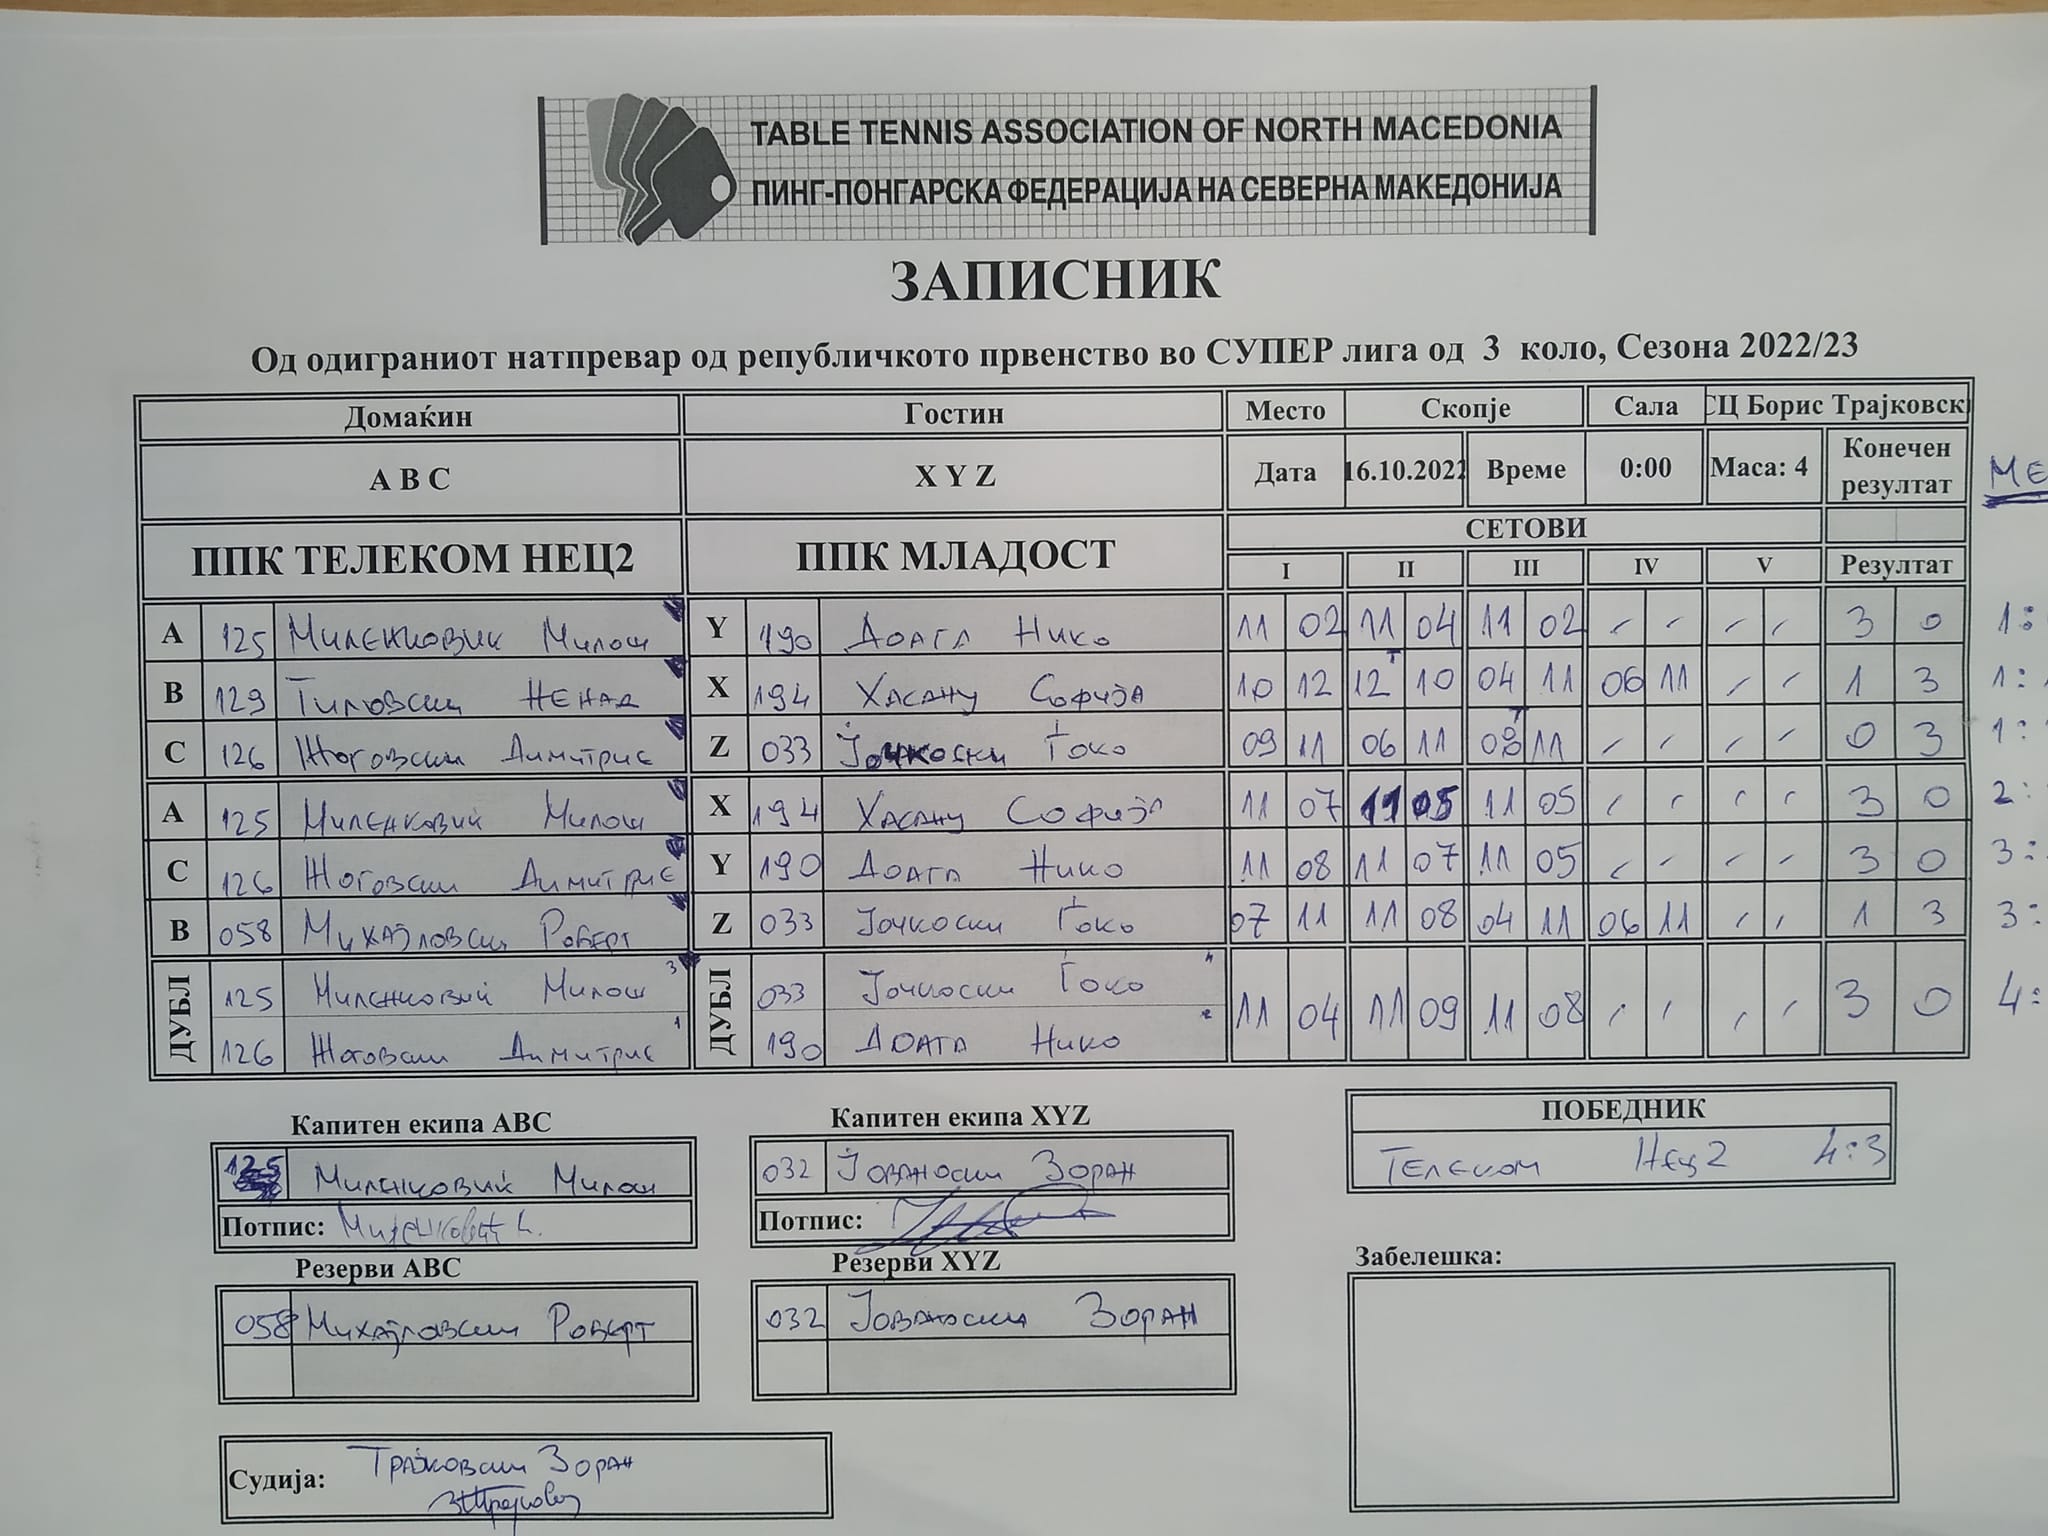 TABLE TENNIS ASSOCIATION OF NORTH MACEDONIA
ПИНГ-ПОНГАРСКА ФЕДЕРАЦИЈА НА СЕВЕРНА МАКЕДОНИЈА
ЗАПИСНИК
Од одиграниот натпревар од републичкото првенство во СУПЕР лига од 3 коло, Сезона 2022/23
Домаќин Гостин Место Скопје Сала СЦ Борис Трајковск
A B C X Y Z Дата 16.10.2022 Време 0:00 Маса: 4 Конечен резултат МЕ
ППК ТЕЛЕКОМ НЕЦ2 ППК МЛАДОСТ СЕТОВИ
I II III IV V Резултат
A 125 Миленковиќ Милош Y 190 Долга Нико 11 02 11 04 11 02 - - - - 3 0 1:
B 129 Тиловски Ненад X 194 Хасану Софија 10 12 12 T 10 04 11 06 11 - - 1 3 1:
C 126 Жоговски Димитрис Z 033 Јочкоски Ѓоко 09 11 06 11 08 T 11 - - - - 0 3 1:
A 125 Миленковиќ Милош X 194 Хасану Софија 11 07 11 05 11 05 - - - - 3 0 2:
C 126 Жоговски Димитрие Y 190 Долга Нико 11 08 11 07 11 05 - - - - 3 0 3:
B 058 Михајловски Роберт Z 033 Јочкоски Ѓоко 07 11 11 08 04 11 06 11 - - 1 3 3:
ДУБЛ 125 Миленковиќ Милош 3 ДУБЛ 033 Јочкоски Ѓоко 4 11 04 11 09 11 08 - - - - 3 0 4:
126 Жоговски Димитрие 1 190 Долга Нико 2
Капитен екипа ABC Капитен екипа XYZ ПОБЕДНИК
125 Миленковиќ Милош 032 Јованоски Зоран Телеком Нец2 4:3
Потпис: Миленковиќ М. Потпис:
Резерви ABC Резерви XYZ Забелешка:
058 Михајловски Роберт 032 Јованоски Зоран
Судија: Трајковски Зоран